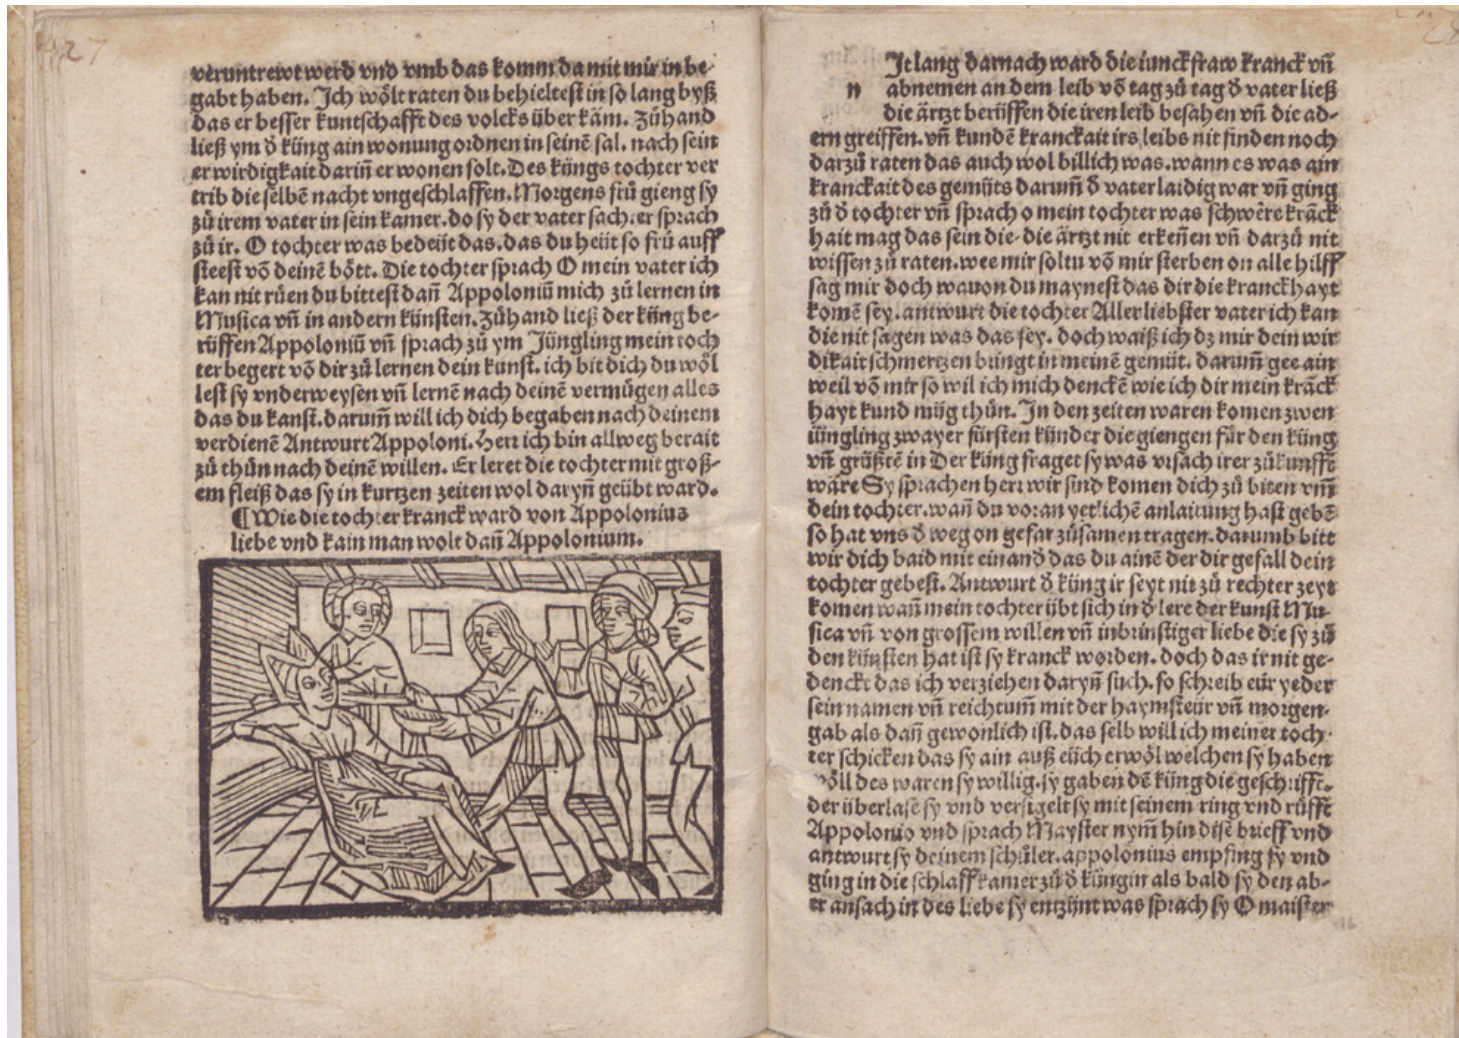 27
veruntrewt werd vnd vmb das komm da mit mir in be-
gabt haben. Ich wo̊lt raten du behieltest in so lang byß
das er besser kuntschafft des volcks über käm. Zůhand
ließ ym d̄ küng ain wonung ordnen in seinē sal. nach sein
er wirdigkait dariñ er wonen solt. Des küngs tochter ver
trib die selbē nacht vngeschlaffen. Morgens frů gieng sy
zů irem vater in sein kamer. do sy der vater sach. er sprach
zů ir. O tochter was bedeüt das. das du heüt so frů auff
steest vō deinē bo̊tt. Die tochter sprach O mein vater ich
kan nit růen du bittest dañ Appoloniū mich zů lernen in
Musica vñ in andern künsten. Zůhand ließ der küng be-
rüffen Appoloniū vñ sprach zů ym Jüngling mein toch
ter begert vō dir zů lernen dein kunst. ich bit dich du wo̊l
lest sy vnderweysen vñ lernē nach deinē vermügen alles
das du kanst. darum̄ will ich dich begaben nach deinem
verdienē Antwurt Appoloni. Herr ich bin allweg berait
zů thůn nach deinē willen. Er leret die tochter mit groß-
em fleiß das sy in kurtzen zeiten wol daryñ geübt ward.
¶ Wie die tochter kranck ward von Appolonius
liebe vnd kain man wolt dañ Appolonium.
Jt lang darnach ward die iunckfraw kranck vñ
n abnemen an dem leib vō tag zů tag d̄ vater ließ
die ärtzt berüffen die iren leib besahen vñ die ad-
ern greiffen. vñ kundē kranckait irs leibs nit finden noch
darzů raten das auch wol billich was. wann es was ain
kranckait des gemüts darum̄ d̄ vater laidig war vñ ging
zů d̄ tochter vñ sprach o mein tochter was schwëre krāck
hait mag das sein die die ärtzt nit erkeñen vñ darzů nit
wissen zů raten. wee mir soltu vō mir sterben on alle hilff
sag mir doch wauon du maynest das dir die kranckhayt
komē sey. antwurt die tochter Aller liebster vater ich kan
die nit sagen was das sey. doch waiß ich dz mir dein wir
dikait schmertzen bringt in meinē gemüt. darum̄ gee ain
weil vō mir so wil ich mich denckē wie ich dir mein krāck
hayt kund müg thůn. In den zeiten waren komen zwen
iüngling zwayer fürsten kinder die giengen für den küng
vñ grüßtē in Der küng fraget sy was vrsach irer zůkunfft
wäre Sy sprachen herr wir sind komen dich zů biten vm̄
dein tochter. wañ du voran yetlichē anlaitung hast gebē
so hat vns d̄ weg on gefar zůsamen tragen. darumb bitt
wir dich baid mit einand̄ das du ainē der dir gefall dein
tochter gebest. Antwurt d̄ küng ir seyt nit zů rechter zeyt
komen wañ mein tochter übt sich in d̄ lere der kunst Mu-
sica vñ von grossem willen vñ inbrinstiger liebe die sy zů
den künsten hat ist sy kranck worden. doch das ir nit ge-
denckt das ich verziehen daryñ such. so schreib eür yeder
sein namen vñ reichtum̄ mit der haymsteür vñ morgen-
gab als dañ gewonlich ist. das selb will ich meiner toch-
ter schicken das sy ain auß eüch erwo̊l welchen sy haben
wo̊ll des waren sy willig. sy gaben dē küng die geschrifft.
der überlase sy vnd versigelt sy mit seinem ring vnd rüfft
Appolonio vnd sprach Mayster nym̄ hin disē brieff vnd
antwurt sy deinem schůler. appolonius empfing sy vnd
ging in die schlaff kamer zů d̄ küngin als bald sy den ab-
er ansach in des liebe sy entzünt was sprach sy O maister